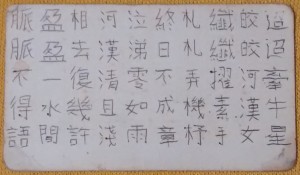 迢迢牽牛星
皎皎河漢女
纖纖擢素手
札札弄機杼
終日不成章
泣涕零如雨
河漢清且淺
相去復幾許
盈盈一水間
脈脈不得語